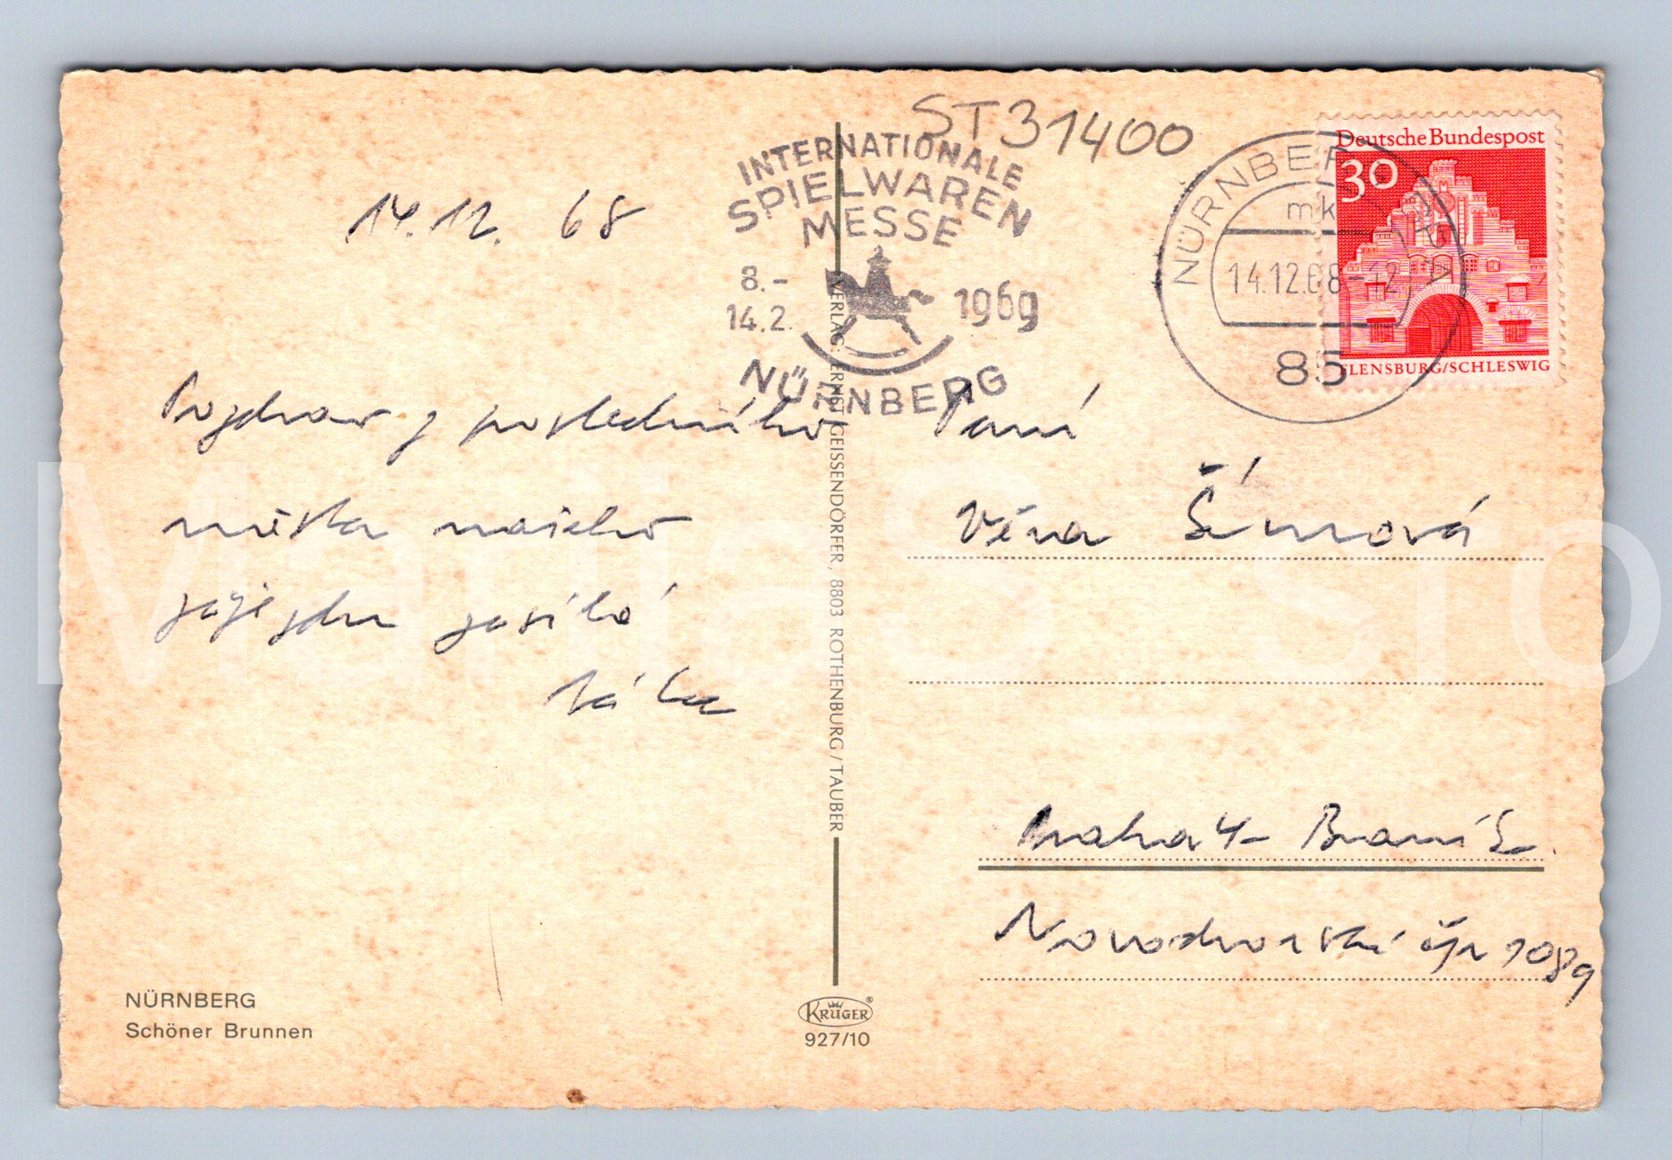 ST31400
INTERNATIONALE
SPIELWAREN
MESSE
8.-
14.2.
1969
NÜRNBERG
NÜRNBERG
mk
14.12.68-12
85
Deutsche Bundespost
30
FLENSBURG/SCHLESWIG
14.12. 68
Pozdrav z posledního
místa našeho
zájezdu zasílá
Paní
Věra Šímová
Praha 4- Braník
Novodvorská čp 1089
VERLAG: ERNST GEISSENDÖRFER, 8803 ROTHENBURG/TAUBER
NÜRNBERG
Schöner Brunnen
KRÜGER®
927/10